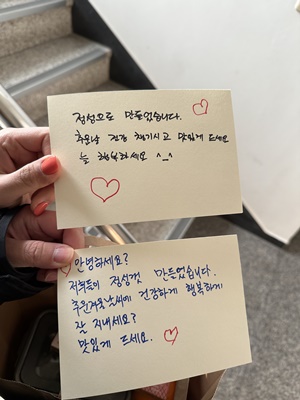 정성으로 만들었습니다.
추운날 건강 챙기시고 맛있게 드세요
늘 행복하세요 ^_^
안녕하세요?
저희들이 정성껏 만들었습니다.
추운겨울날씨에 건강하게 행복하게
잘 지내세요?
맛있게 드세요.